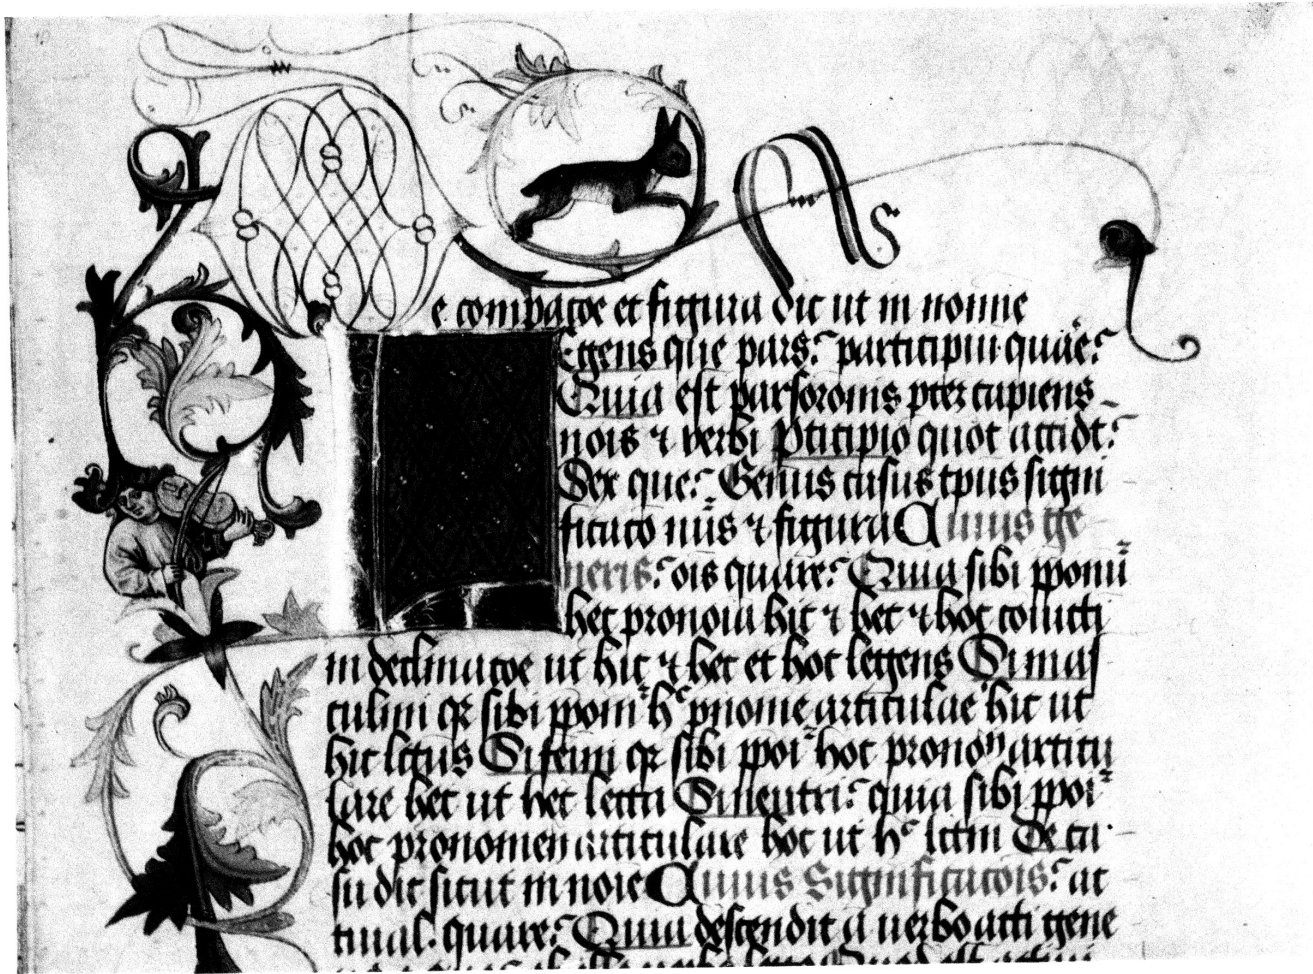 e compacõe et figura dic ut in nomine
Egens que pars? participiũ quãe?
Quia est pars orõnis ptez capiens
nois ⁊ verbi Pticipio quot accidt?
Sex que? Genus casus tpus signi
ficaco nũs ⁊ figura Cuius ge
neris? ois quare? Quia sibi pponũ
hec pronoia hic ⁊ hec ⁊ hoc collecti
in declinacoe ut hic ⁊ hec et hoc legens Si mas
culini qr sibi pponi hc pnomē articulae hic ut
hic lectus Si femi qr sibi ppoi hoc pronon articu
lare hec ut hec lecta Si neutri? quia sibi ppoi
hoc pronomen articulare hoc ut hc lctm De ca
su dic sicut in noie Cuius Significacois? ac
tiual. quare? Quia descendit a verbo acti gene